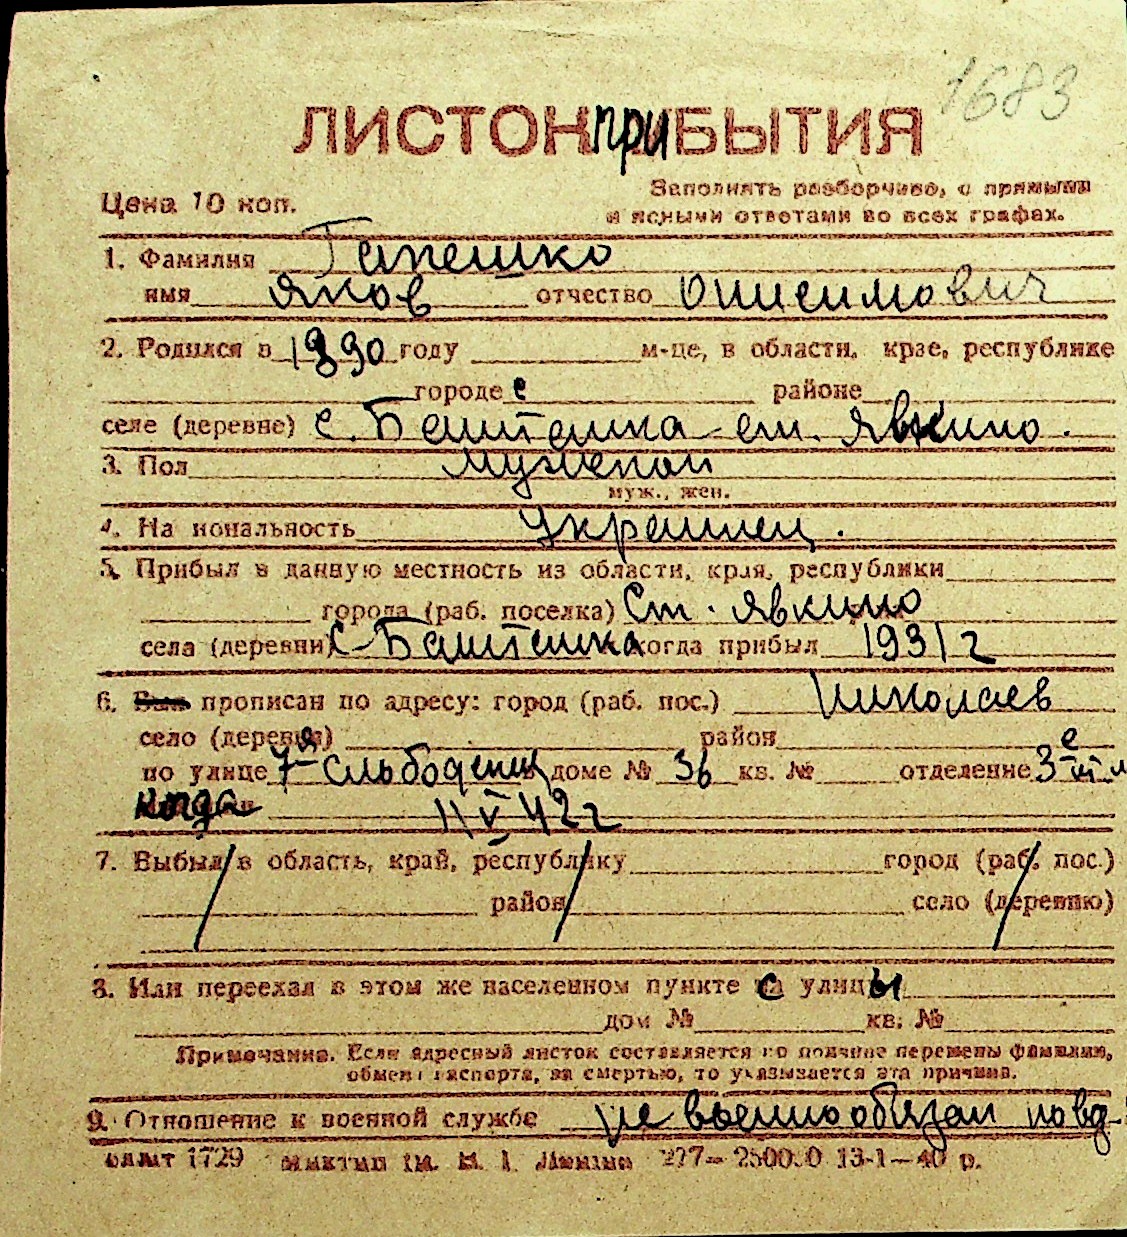 1683
ЛИСТОК ПРИБЫТИЯ
Цена 10 коп.
Заполнять разборчиво, с прямыми
и ясными ответами во всех графах.
1. Фамилия Гапешко
имя Яков отчество Онисимович
2. Родился в 1890 году м-це, в области, крае, республике
городе с районе
селе (деревне) с. Баштанка ст. Явкино.
3. Пол мужской
муж., жен.
4. Национальность Украинец.
5. Прибыл в данную местность из области, края, республики
города (раб. поселка) Ст. Явкино
села (деревни) С-Баштанка когда прибыл 1931 г
6. прописан по адресу: город (раб. пос.) Николаев
село (деревня) район
по улице 7-я Слободская доме № 36 кв. № отделение 3е
когда 11 V 42 г
7. Выбыл в область, край, республику город (раб. пос.)
район село (деревню)
8. Или переехал в этом же населенном пункте с улицы
дом № кв. №
Примечание. Если адресный листок составляется по причине перемены фамилии,
обмена паспорта, за смертью, то указывается эта причина.
9. Отношение к военной службе не военнообязан по
1729 1 13-1—40 р.